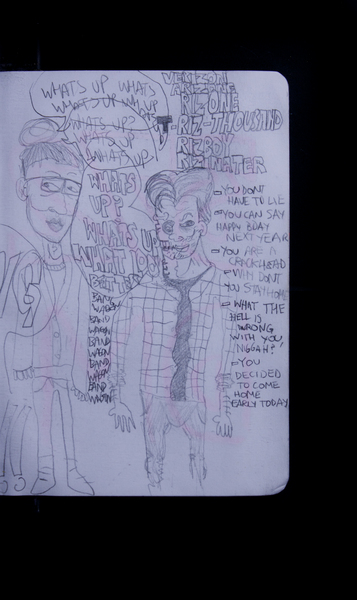 WHATS UP WHATS
WHATS UP WHATS UP
WHATS UP?
WHATS UP
WHATS UP!
VERIZON
ARIZONE
RIZ-ONE
T-RIZ-THOUSAND
RIZBOY
RIZINATER
WHATS
UP?
WHATS UP
WHAT
BETTER
BAND
WAGEN
BAND
WAGEN
BAND
WAGEN
BAND
WAGEN
BAND
WAGEN
- YOU DONT
HAVE TO LIE
- YOU CAN SAY
HAPPY BDAY
NEXT YEAR
- YOU ARE A
CRACKHEAD
- WHY DONT
YOU STAY HOME
- WHAT THE
HELL IS
WRONG
WITH YOU,
NIGGAH?
- YOU
DECIDED
TO COME
HOME
EARLY TODAY